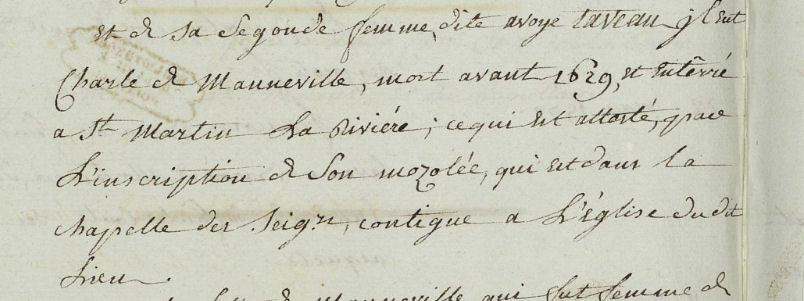 et de sa segonde femme, dite avoye taveau, jl eut
Charle de Manneville, mort avant 1629, et entérré
a St. Martin La Riviére; ce qui est attesté, par
L'inscription de Son mozolée, qui est dans la
chapelle des Seigrs, contigue a L'église du dit
Lieu.
de Manneville qui fut femme de